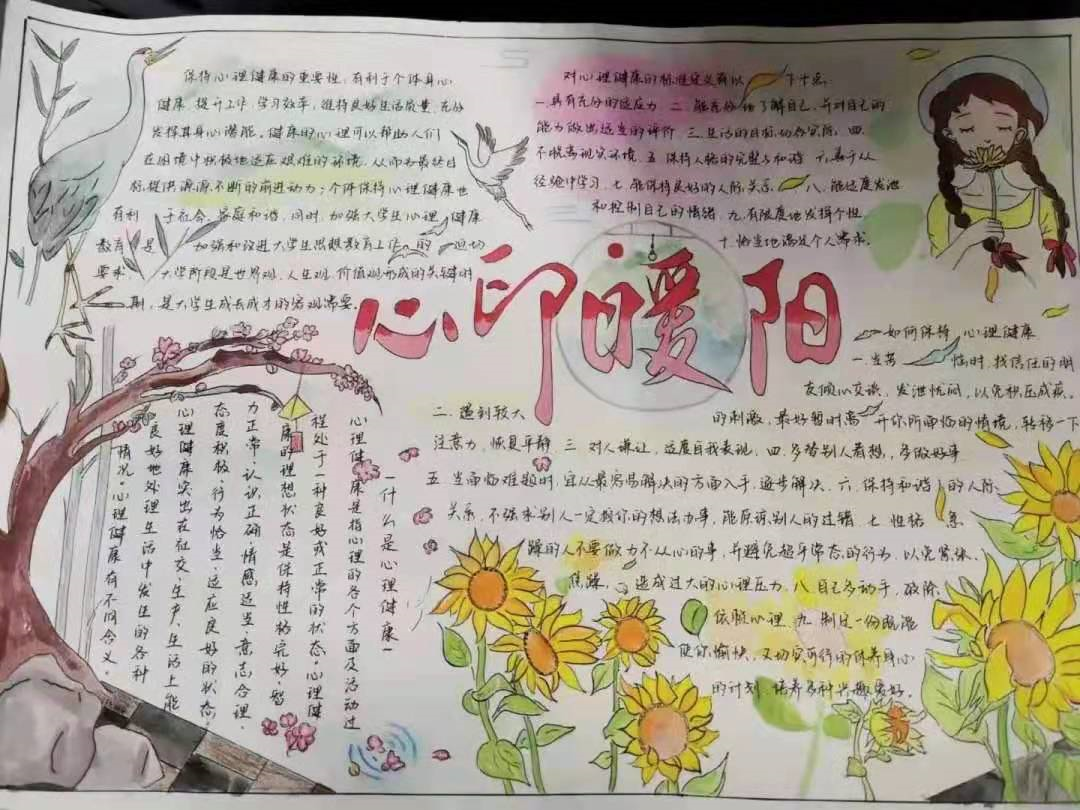 保持心理健康的重要性,有利于个体身心
健康、提升工作、学习效率,维持良好生活质量,充分
发挥其身心潜能。健康的心理可以帮助人们
在困境中积极地适应艰难的环境,从而为最终目
标提供源源不断的前进动力;个体保持心理健康也
有利于社会、家庭和谐,同时,加强大学生心理健康
教育是加强和改进大学生思想教育工作的迫切
要求,大学阶段是世界观、人生观、价值观形成的关键时
期,是大学生成长成才的客观需要。
对心理健康的标准定义有以下十点:
一.具有充分的适应力 二.能充分地了解自己,并对自己的
能力做出适当的评价 三.生活的目标切合实际 四.
不脱离现实环境 五.保持人格的完整与和谐 六.善于从
经验中学习 七.能保持良好的人际关系 八.能适度发泄
和控制自己的情绪 九.有限度地发挥个性
十.恰当地满足个人需求。
心印暖阳
一什么是心理健康一
心理健康是指心理的各个方面及活动过
程处于一种良好或正常的状态。心理健
康的理想状态是保持性格完好、智
力正常、认识正确、情感适当、意志合理、
态度积极、行为恰当、适应良好的状态。
心理健康突出在社交、生产、生活上能
良好地处理生活中发生的各种
情况。心理健康有不同含义。
如何保持心理健康
一.当苦恼时,找信任的朋
友倾心交谈,发泄忧闷,以免积压成疾。
二.遇到较大的刺激,最好暂时离开你所面临的情境,转移一下
注意力,恢复平静 三.对人谦让,适度自我表现,四.多替别人着想,多做好事
五.当面临难题时,宜从最容易解决的方面入手,逐步解决.六.保持和谐的人际
关系,不强求别人一定按你的想法办事,能原谅别人的过错 七.性格急
躁的人不要做力不从心的事,并避免超乎常态的行为,以免紧张、
焦躁,造成过大的心理压力.八.自己多动手,破除
依赖心理 九.制定一份既能
使你愉快,又切实可行的修养身心
的计划,培养多种兴趣爱好。